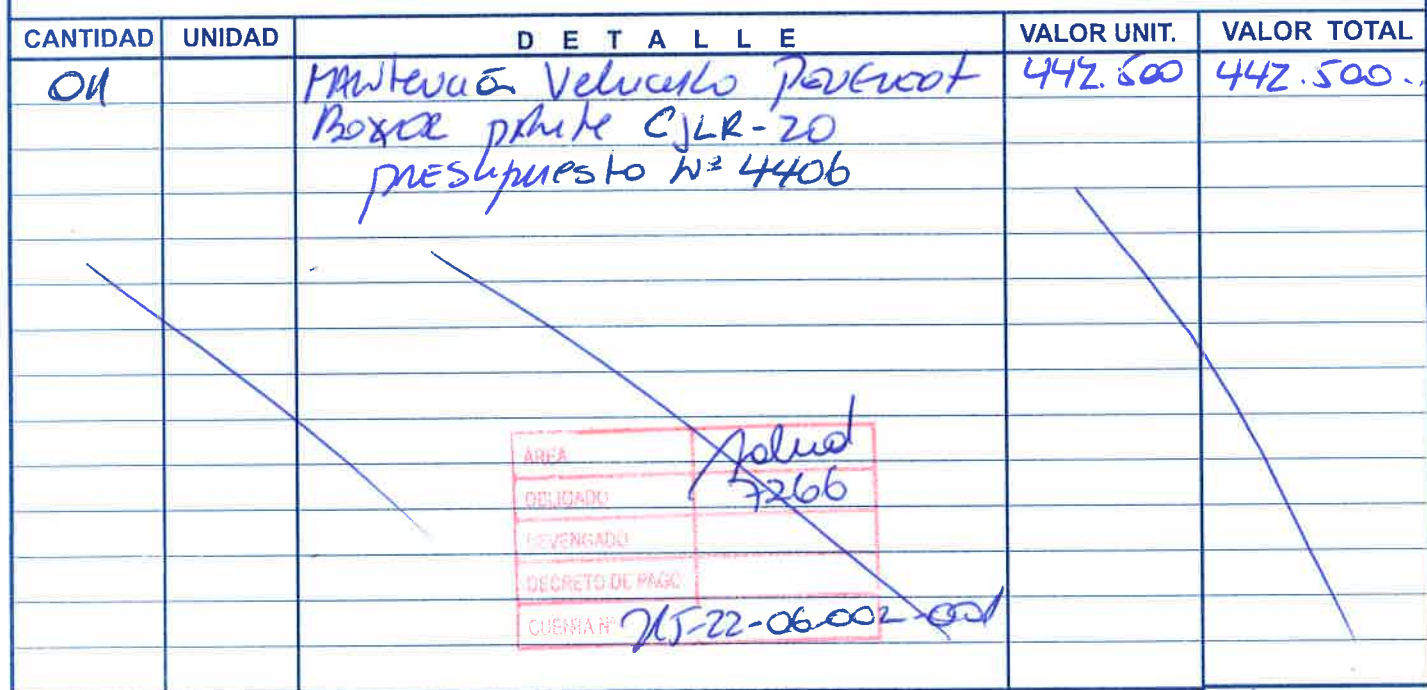 CANTIDAD UNIDAD DETALLE VALOR UNIT. VALOR TOTAL
01 Mantención Vehiculo Peugeot 442.500 442.500.-
Boxer patente CJLR-20
presupuesto Nº 4406
AREA Salud
OBLIGADO 7266
DEVENGADO
DECRETO DE PAGO
CUENTA Nº 215-22-06-002-001